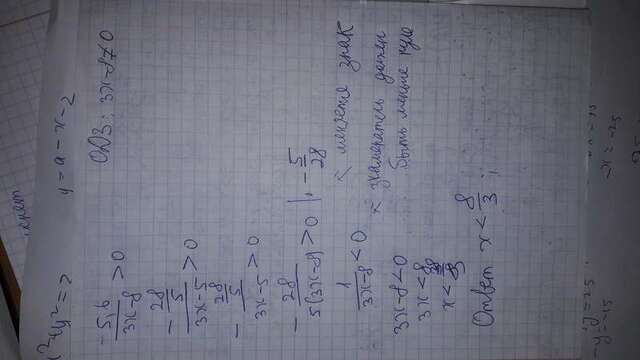 x²+y²=2 y = a - x - 2
-5,6/(3x-8) > 0 ОДЗ: 3x-8≠0
-(28/5)/(3x-5) > 0
-(28/5)/(3x-5) > 0
-28/(5(3x-8)) > 0 |· -5/28
меняется знак
1/(3x-8) < 0
знаменатель должен
быть меньше нуля
3x-8<0
3x < 8
x < 8/3
Ответ x < 8/3;
y = 25
-y = -15
x = -25